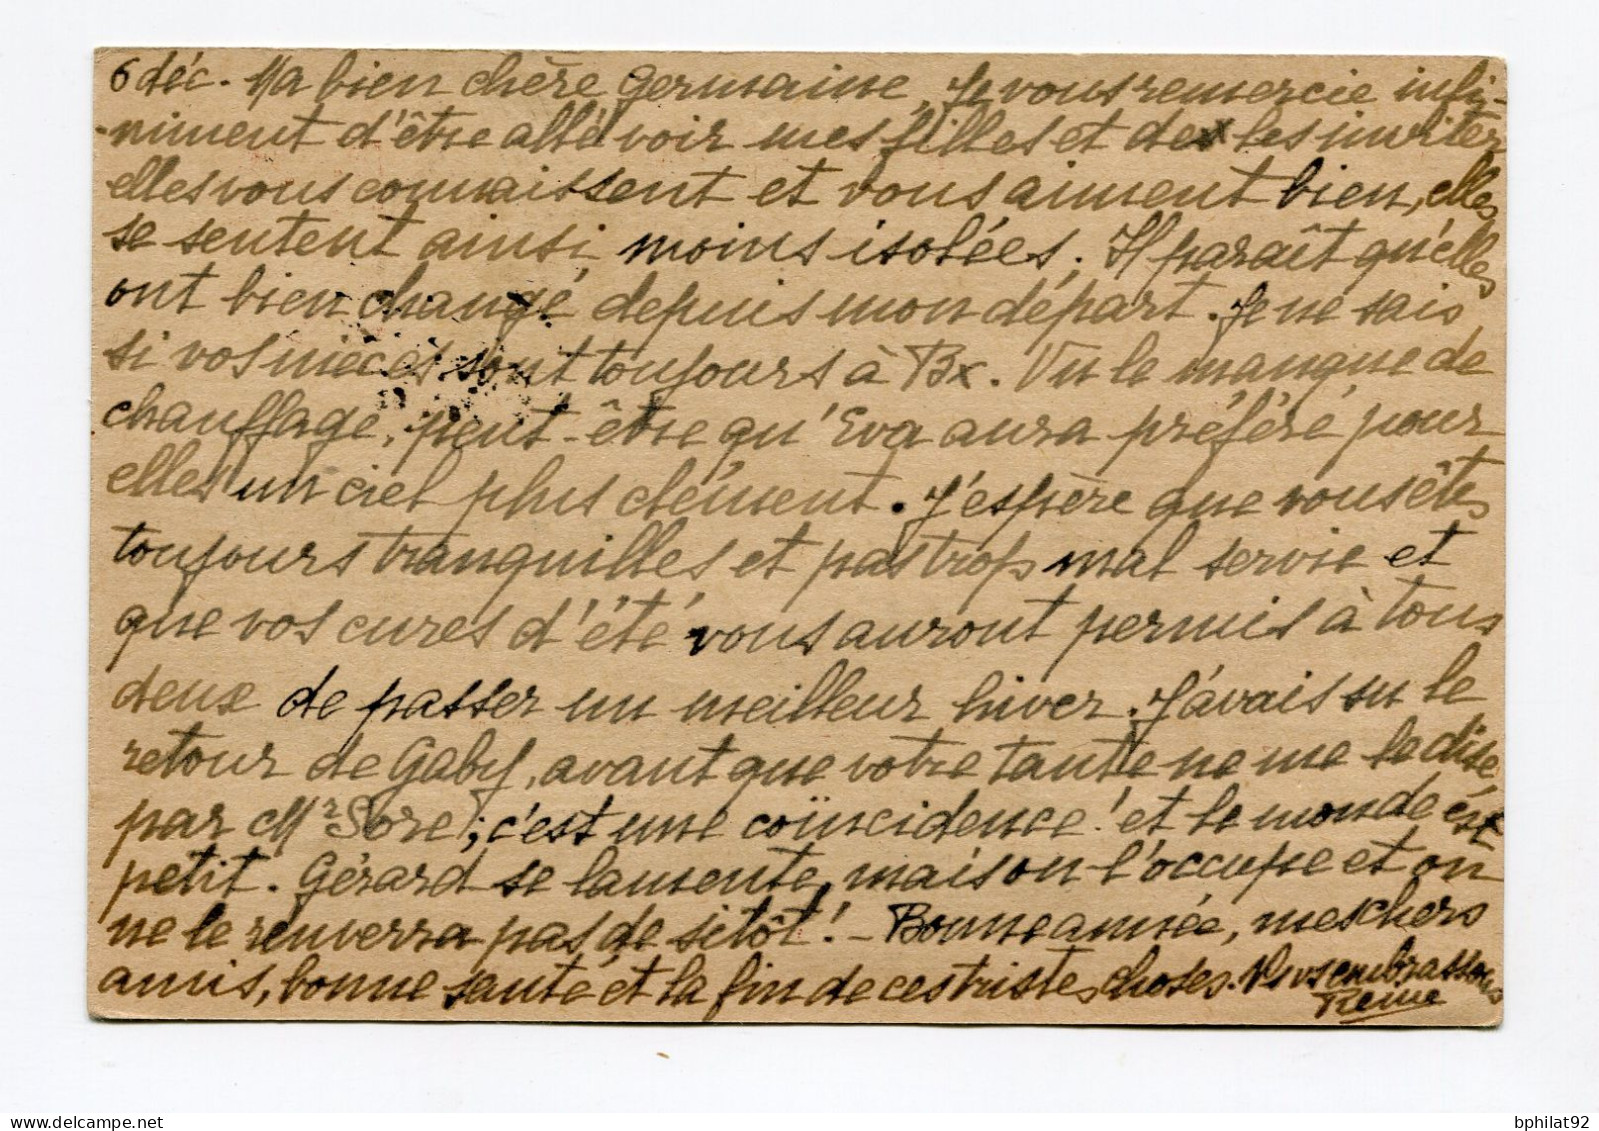 6 déc. Ma bien chère Germaine, Je vous remercie infi-
-niment d'être allé voir mes filles et de les inviter
elles vous connaissent et vous aiment bien, elles
se sentent ainsi moins isolées. Il paraît qu'elles
ont bien changé depuis mon départ. Je ne sais
si vos nièces sont toujours à Bx. Vu le manque de
chauffage, peut-être qu'Eva aura préféré pour
elles un ciel plus clément. J'espère que vous êtes
toujours tranquilles et pas trop mal servie et
que vos cures d'été vous auront permis à tous
deux de passer un meilleur hiver. J'avais su le
retour de Gaby, avant que votre tante ne me le dise
par Mr Sore; c'est une coïncidence! et le monde est
petit. Gérard se lamente, mais on l'occupe et on
ne le renverra pas de sitôt! - Bonne année, mes chers
amis, bonne santé et la fin de ces tristes choses. Vs embrassons
Reine
bphilat92